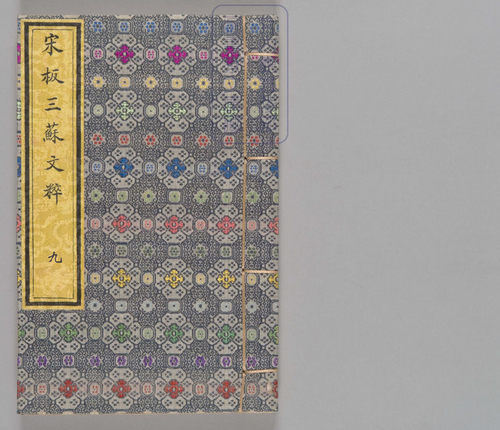 宋板三蘇文粹
九